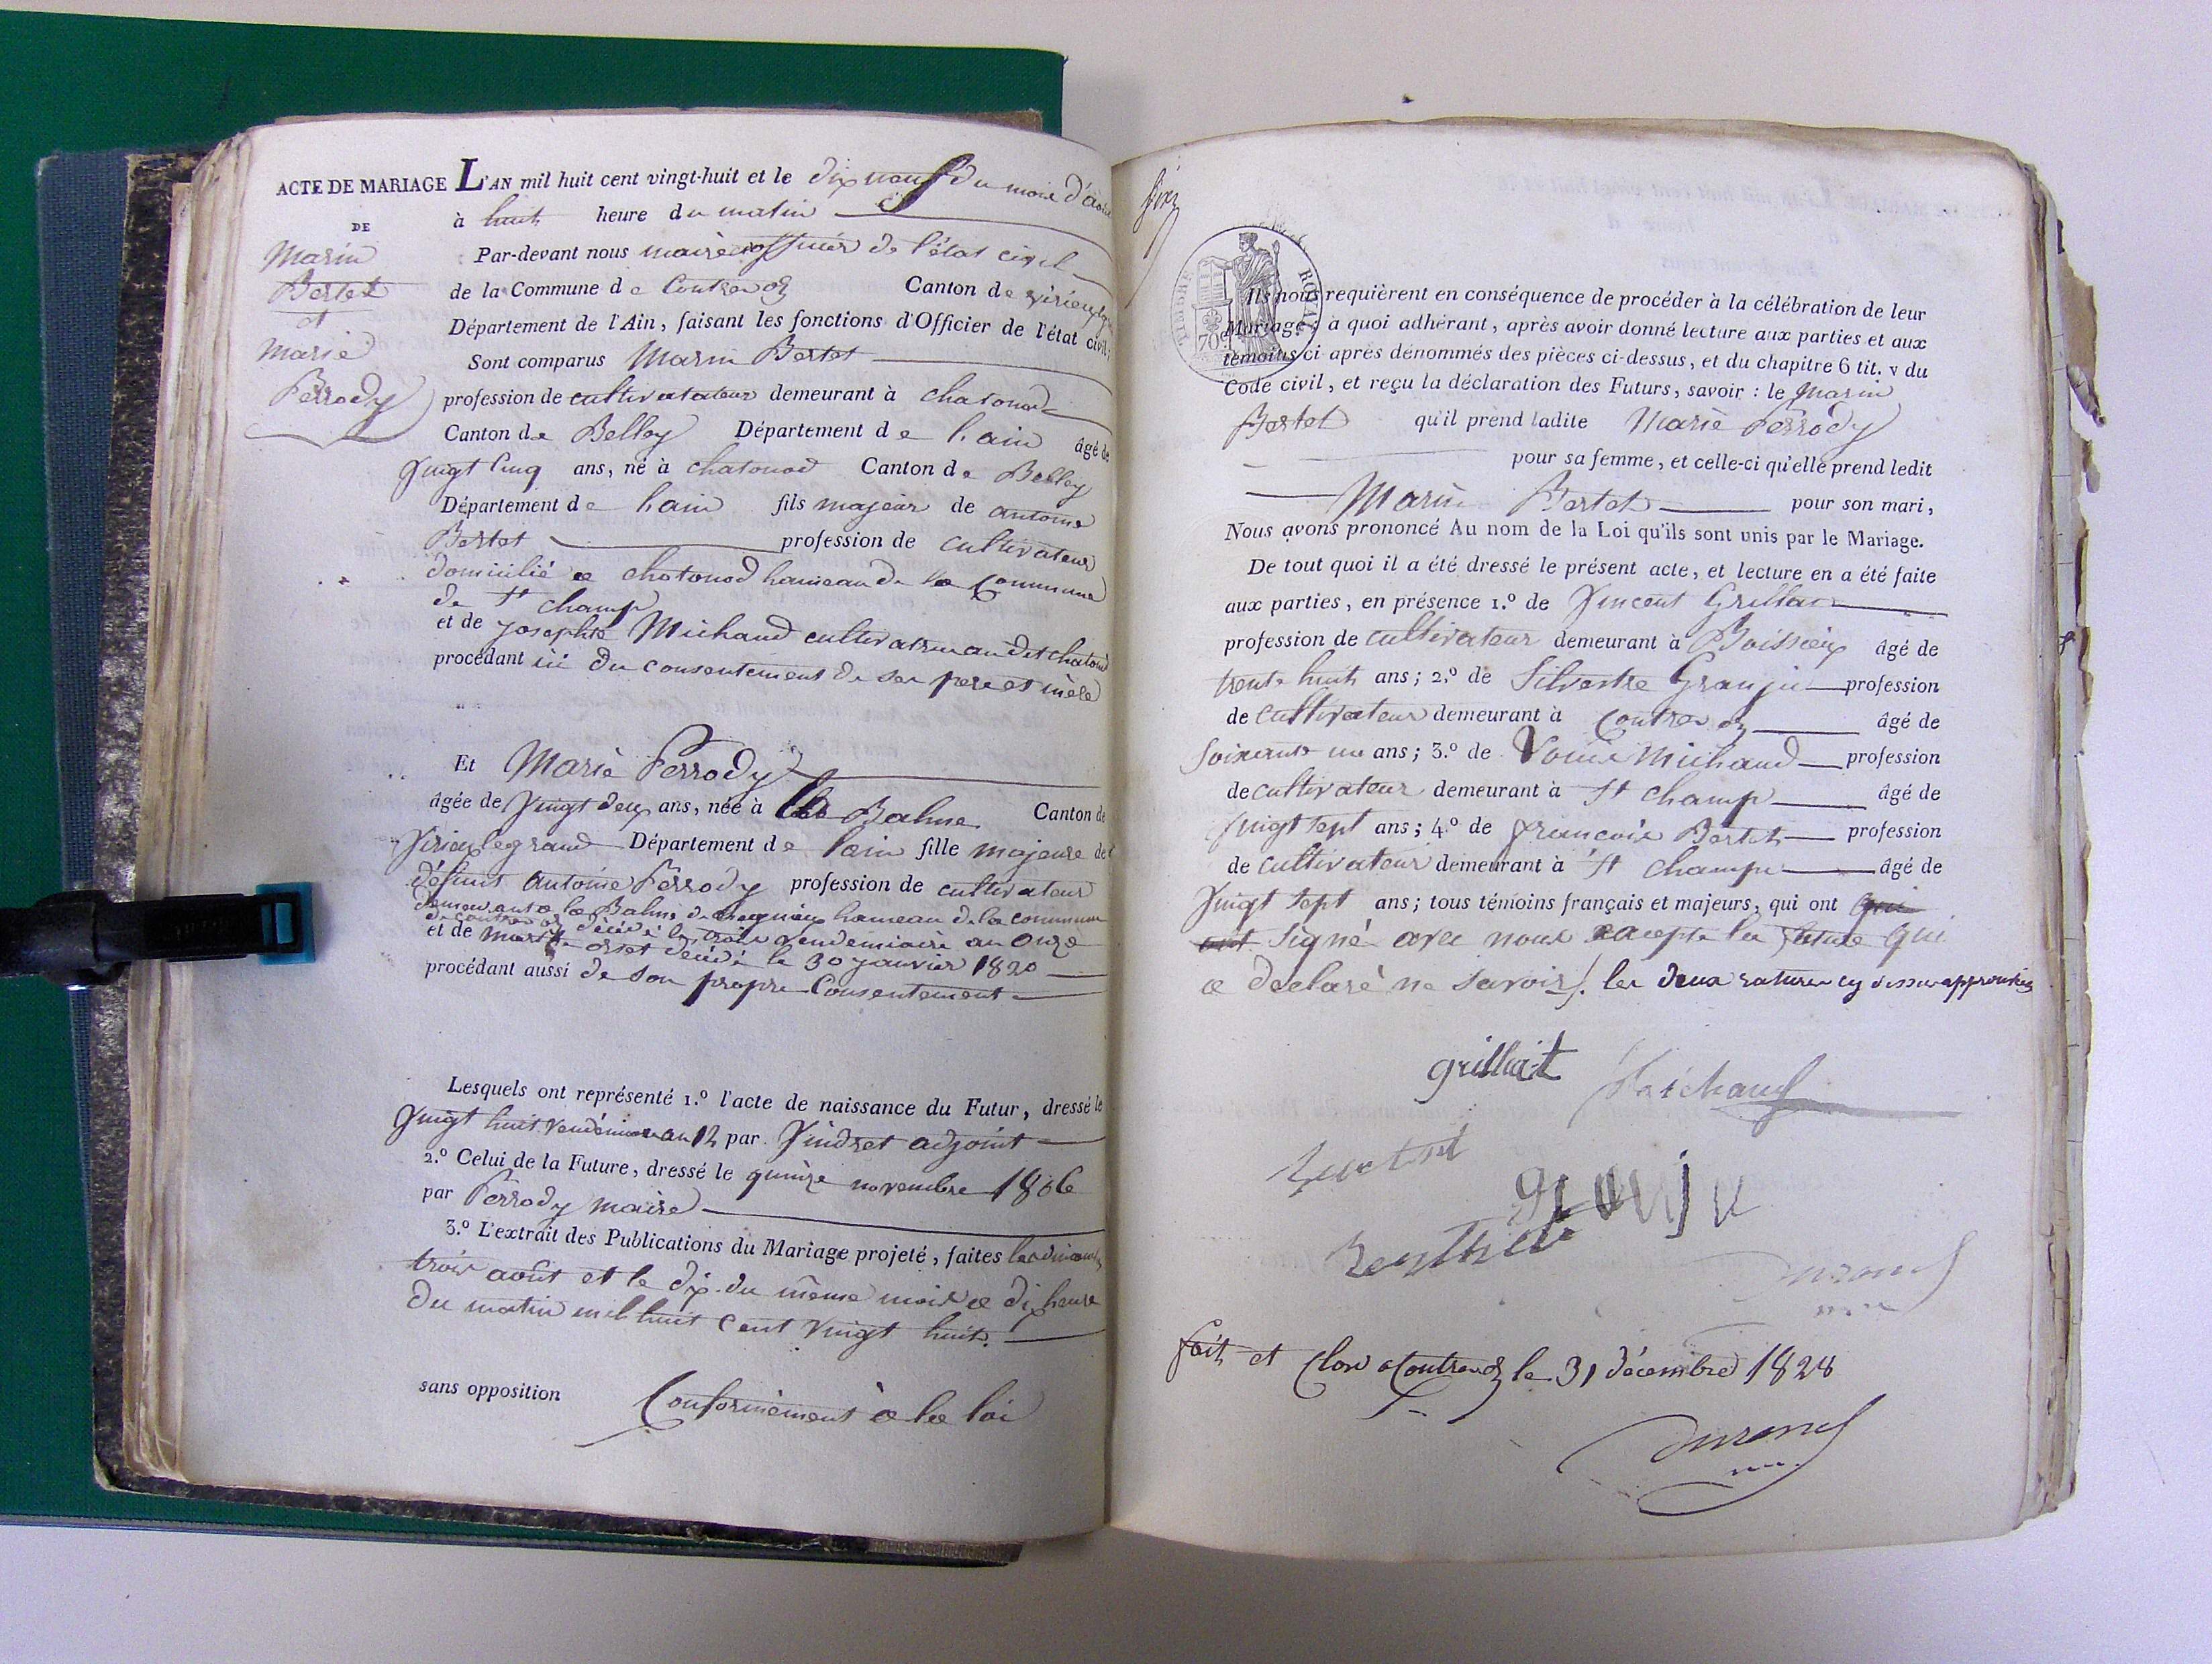 ACTE DE MARIAGE L'AN mil huit cent vingt-huit et le dix neuf du mois d'aout
DE
Marin
Bertet
et
Marie
Perrody
à huit heure du matin
Par-devant nous maire officier de l'état civil
de la Commune de Contrevoz Canton de virieu
Département de l'Ain, faisant les fonctions d'Officier de l'état civil;
Sont comparus Marin Bertet
profession de cultivatateur demeurant à chatonod
Canton de Belley Département de l'ain âgé de
Vingt Cinq ans, né à chatonod Canton de Belley
Département de l'ain fils majeur de antoine
Bertet profession de cultivateur
domicilié a chatonod hameau de la Commune
de st champ
et de Josephte Michaud cultivatrice au dit chatonod
procédant ici du consentement de ses pere et mère
Et Marie Perrody
âgée de Vingt deux ans, née à la Balme Canton de
Virieu le grand Département de l'ain fille majeure de
défunt Antoine Perrody profession de cultivateur
demeurant a la Balme de hameau de la commune
de contrevoz décédé le trois vendemiaire an onze
et de décédé le 30 janvier 1820
procédant aussi de son propre Consentement
Lesquels ont représenté 1.º l'acte de naissance du Futur, dressé le
Vingt huit Vendémiaire an 12 par Vindret adjoint
2.º Celui de la Future, dressé le quinze novembre 1806
par Perrody maire
3.º L'extrait des Publications du Mariage projeté, faites les dimanches
trois août et le dix du même mois a dix heure
du matin mil huit cent vingt huit.
sans opposition Conformément à la loi
TIMBRE ROYAL
70
Ils nous requièrent en conséquence de procéder à la célébration de leur
Mariage; à quoi adhérant, après avoir donné lecture aux parties et aux
témoins ci-après dénommés des pièces ci-dessus, et du chapitre 6 tit. v du
Code civil, et reçu la déclaration des Futurs, savoir : le Marin
Bertet qu'il prend ladite Marie Perrody
pour sa femme, et celle-ci qu'elle prend ledit
Marin Bertet pour son mari,
Nous avons prononcé Au nom de la Loi qu'ils sont unis par le Mariage.
De tout quoi il a été dressé le présent acte, et lecture en a été faite
aux parties, en présence 1.º de Vincent Grillait
profession de cultivateur demeurant à Boissieu âgé de
trente huit ans; 2.º de Silvestre Granju profession
de cultivateur demeurant à Contrevoz âgé de
Soixante un ans; 3.º de Louis Michaud profession
de cultivateur demeurant à St champ âgé de
Vingt sept ans; 4.º de francois Bertet profession
de cultivateur demeurant à St champ âgé de
Vingt sept ans; tous témoins français et majeurs, qui ont qui
ont signé avec nous excepte la future qui
a déclaré ne savoir. les deux ratures cy dessus approuvées
grilliait Michaud
granju
durand
fait et Clos a Contrevoz le 31 décembre 1828
durand